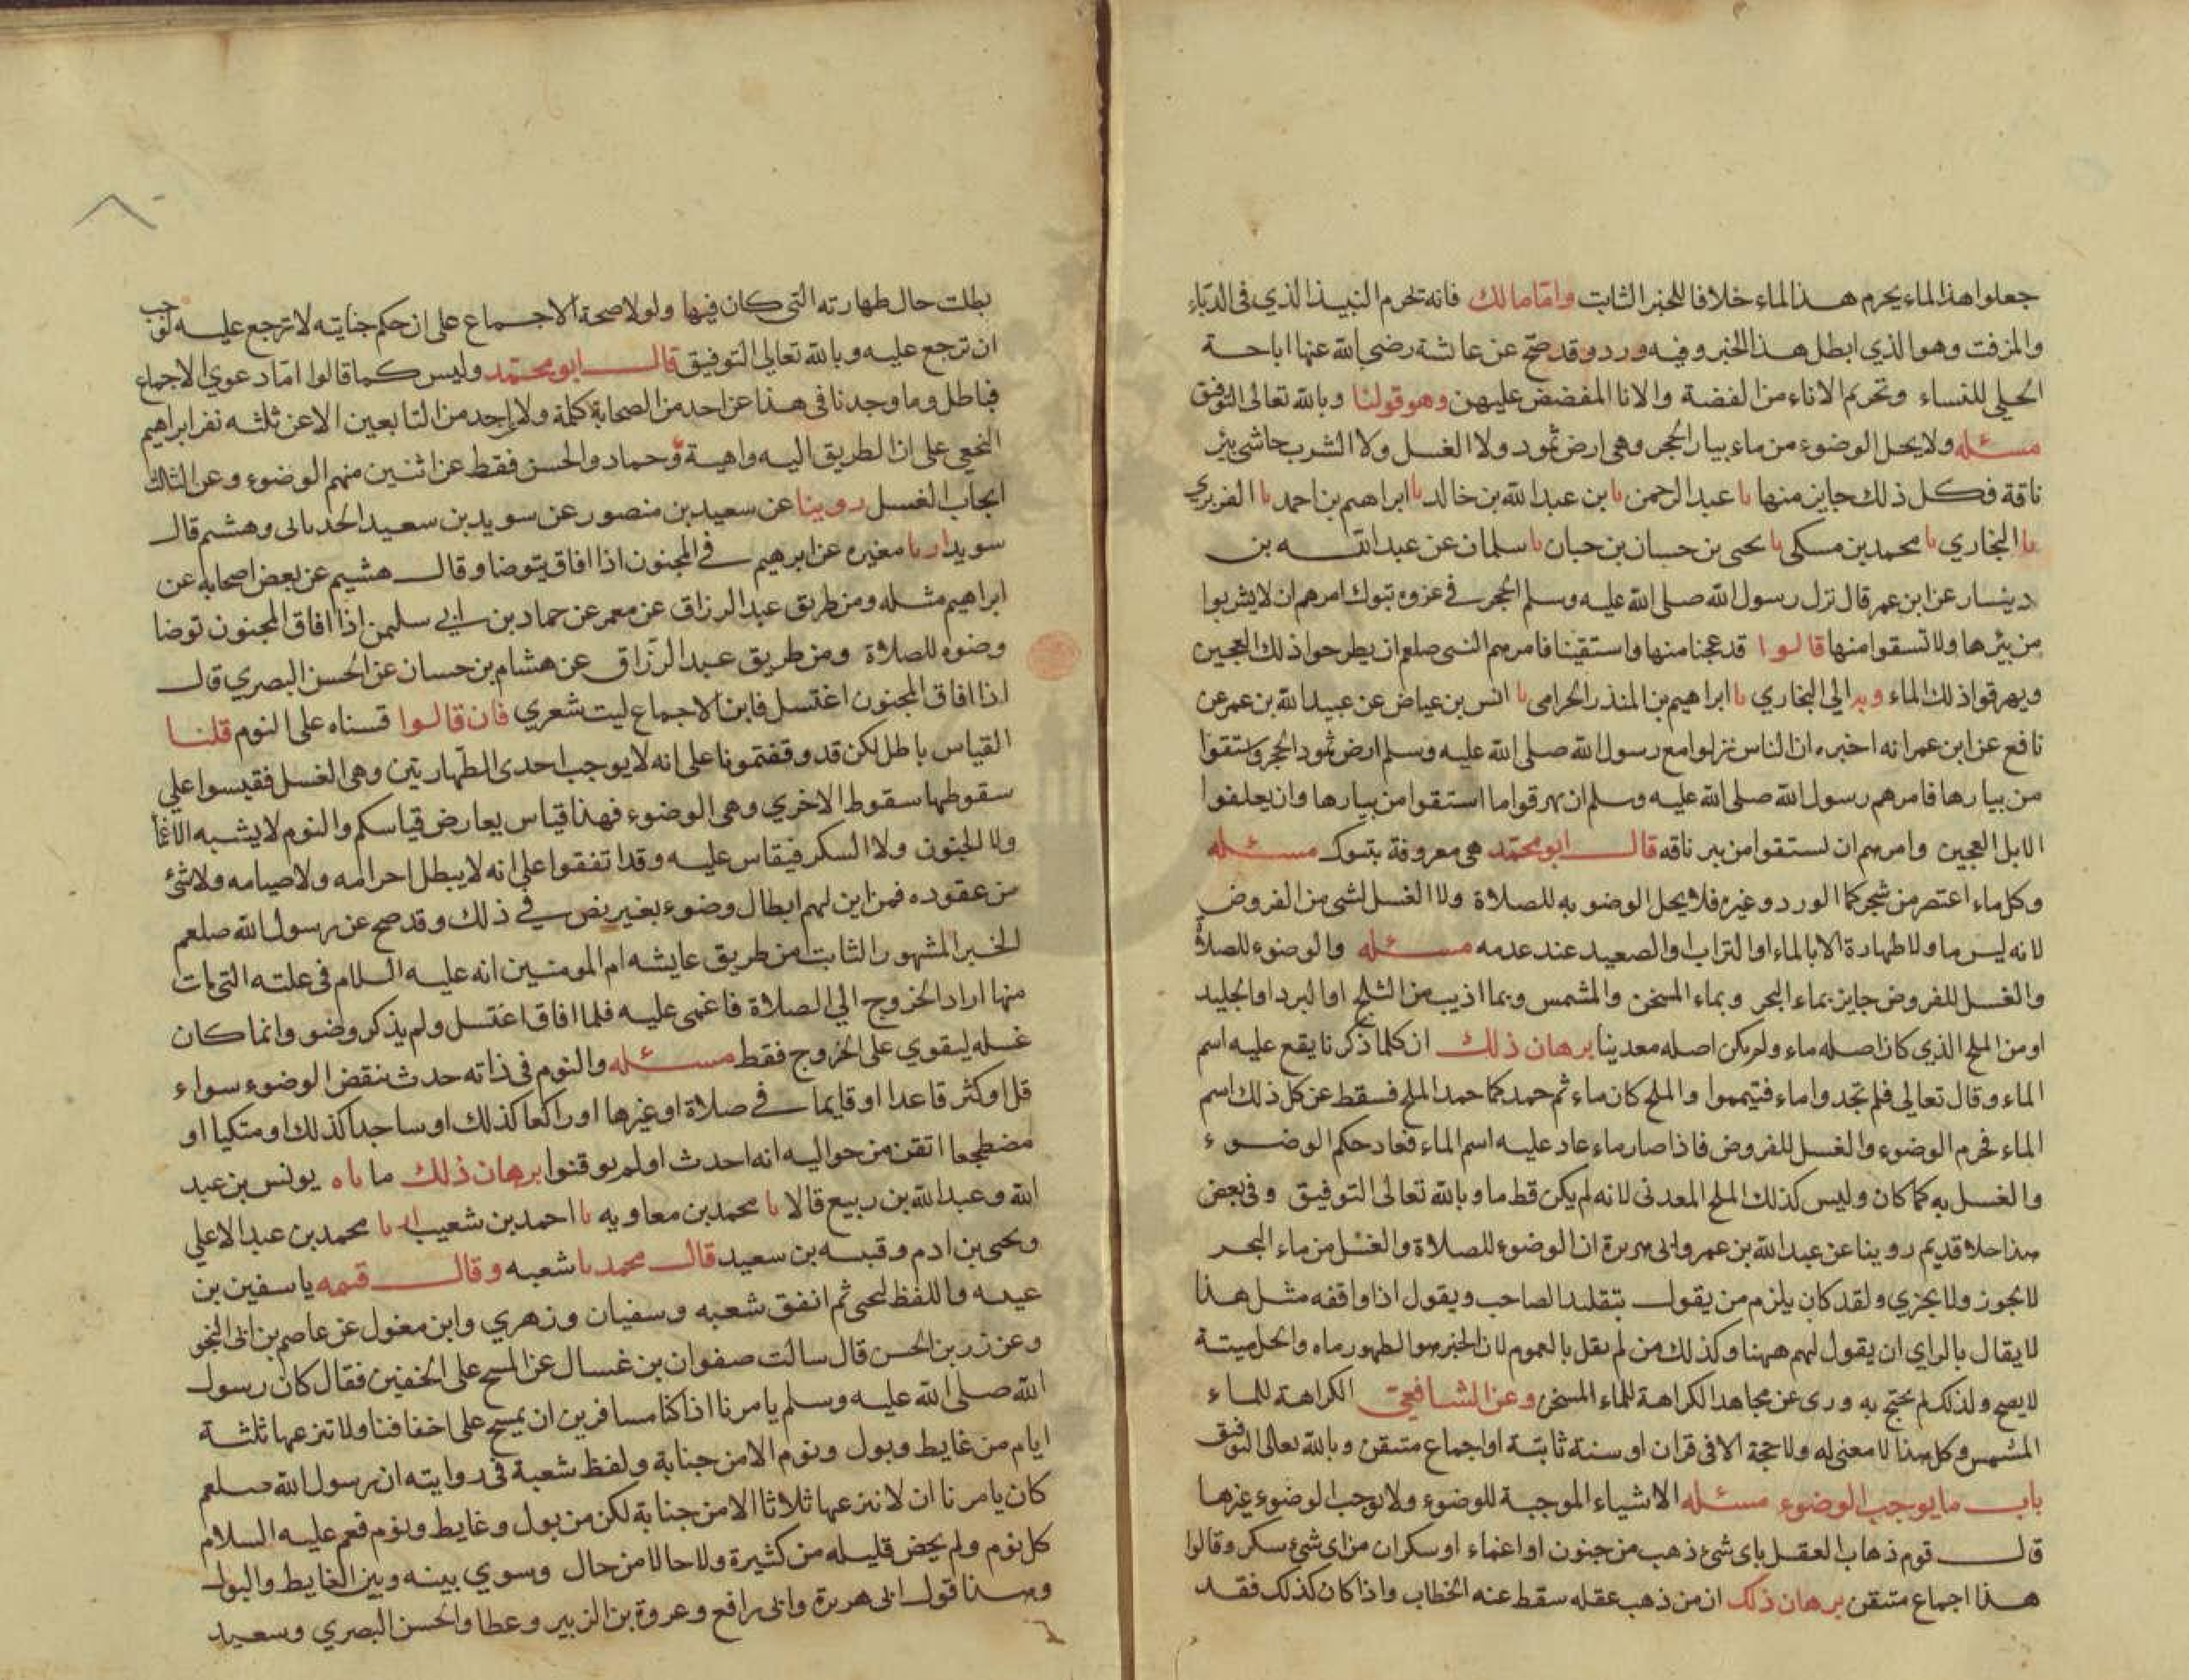 جعلوا هذا الماء يحرم هذا الماء خلافا للخبر الثابت واما مالك فانه تحرم النبيذ الذي في الدباء
والمزفت وهو الذي ابطل هذا الخبر وفيه ورد وقد صح عن عائشة رضي الله عنها اباحة
الحلي للنساء وتحريم الاناء من الفضة والانا المفضض عليهن وهو قولنا وبالله تعالى التوفيق
مسئله ولا يحل الوضوء من ماء بيار الحجر وهي ارض ثمود ولا الغسل ولا الشرب حاشى بئر
ناقة فكل ذلك جايز منها نا عبد الرحمن نا بن عبد الله بن خالد نا ابراهيم بن احمد نا الفربري
نا البخاري نا محمد بن مسكي نا يحيى بن حسان بن حبان نا سلمان عن عبد الله بن
دينار عن ابن عمر قال نزل رسول الله صلى الله عليه وسلم الحجر في غزوه تبوك امرهم ان لا يشربوا
من بئرها ولا تسقوا منها قالوا قد عجنا منها واستقينا فامرهم النبي صلعم ان يطرحوا ذلك العجين
ويهرقوا ذلك الماء وبه الي البخاري نا ابراهيم بن المنذر الحرامي نا انس بن عياض عن عبيد الله بن عمر عن
نافع عن ابن عمر انه اخبره ان الناس نزلوا مع رسول الله صلى الله عليه وسلم ارض ثمود الحجر واستقوا
من بيارها فامرهم رسول الله صلى الله عليه وسلم ان يهرقوا ما استقوا من بيارها وان يعلفوا
الابل العجين وامرهم ان لستقوا من بير ناقه قال ابو محمد هي معروفة بتبوك مسئله
وكل ماء اعتصر من شجر كما الورد وغيره فلا يحل الوضو به للصلاة ولا الغسل لشي من الفروض
لانه ليس ما ولا طهارة الا بالماء او التراب والصعيد عند عدمه مسئله والوضوء للصلاة
والغسل للفروض جايز بماء البحر وبماء المسخن والمشمس وبما اذيب من الثلج او البرد او الجليد
او من الملح الذي كان اصله ماء ولم يكن اصله معدينا برهان ذلك ان كلما ذكرنا يقع عليه اسم
الماء وقال تعالى فلم تجدوا ماء فتيمموا والملح كان ماء ثم جمد كما جمد الملح فسقط عن كل ذلك اسم
الماء فحرم الوضوء والغسل للفروض فاذا صار ماء عاد عليه اسم الماء فعاد حكم الوضوء
والغسل به كما كان وليس كذلك الملح المعدني لانه لم يكن قط ما وبالله تعالى التوفيق وفي بعض
هذا خلاف قديم روينا عن عبد الله بن عمر وابي هريرة ان الوضوء للصلاة والغسل من ماء البحر
لا يجوز ولا يجزي ولقد كان يلزم من يقول بتقليد الصاحب ويقول اذا واقفه مثل هذا
لا يقال بالراي ان يقول لهم ههنا وكذلك من لم يقل بالعموم لان الخبر هو الطهور ماه والحل ميتة
لا يصح ولذلك لم يحتج به وروي عن مجاهد الكراهة للماء المسخن وعن الشافعي الكراهة للماء
المشمس وكل هذا لا معنى له ولا حجة الا في قران او سنة ثابتة او اجماع متيقن وبالله تعالى التوفيق
باب ما يوجب الوضوء مسئله الاشياء الموجبة للوضوء ولا يوجب الوضوء غيرها
قال قوم ذهاب العقل باى شئ ذهب من جنون او اغماء او سكران من اى شئ سكر وقالوا
هذا اجماع متيقن برهان ذلك ان من ذهب عقله سقط عنه الخطاب واذا كان كذلك فقد
بطلت حال طهارته التي كان فيها ولولا صحة الاجماع على ان حكم جنابته لا ترجع عليه لوجب
ان ترجع عليه وبالله تعالي التوفيق قال ابو محمد وليس كما قالوا اما دعوي الاجماع
فباطل وما وجدنا في هذا عن احد من الصحابة كلمة ولا احد من التابعين الا عن ثلثه نفر ابراهيم
النخعي على ان الطريق اليه واهية وحماد والحسن فقط عن اثنين منهم الوضوء وعن الثالث
ايجاب الغسل روينا عن سعيد بن منصور عن سويد بن سعيد الحدثاني وهشيم قال
سويد انا مغيره عن ابرهيم في المجنون اذا افاق يتوضا وقال هشيم عن بعض اصحابه عن
ابراهيم مثله ومن طريق عبد الرزاق عن معمر عن حماد بن ابي سليمن اذا افاق المجنون توضا
وضوءه للصلاة ومن طريق عبد الرزاق عن هشام بن حسان عن الحسن البصري قال
اذا افاق المجنون اغتسل فاين الاجماع ليت شعري فان قالوا قسناه على النوم قلنا
القياس باطل لكن قد وقفتمونا على انه لا يوجب احدى الطهارتين وهي الغسل فقيسوا علي
سقوطها سقوط الاخري وهي الوضوء فهذا قياس يعارض قياسكم والنوم لا يشبه الاغما
ولا الجنون ولا السكر فيقاس عليه وقد اتفقوا على انه لا يبطل احرامه ولا صيامه ولا شئ
من عقوده فمن اين لهم ابطال وضوء بغير نص في ذلك وقد صح عن رسول الله صلعم
الخبر المشهور الثابت من طريق عايشه ام المومنين انه عليه السلام في علته التي مات
منها اراد الخروج الي الصلاة فاغمى عليه فلما افاق اغتسل ولم يذكر وضو وانما كان
غسله ليقوي على الخروج فقط مسئله والنوم في ذاته حدث ينقض الوضوء سواء
قل او كثر قاعدا او قايما في صلاة او غيرها او راكعا كذلك او ساجدا كذلك او متكيا او
مضطجعا اتقن من حواليه انه احدث او لم يوقنوا برهان ذلك ما ناه يونس بن عبد
الله وعبد الله بن ربيع قالا نا محمد بن معاويه نا احمد بن شعيب انا محمد بن عبد الاعلي
ويحيى بن ادم وقتيبه بن سعيد قال محمد نا شعبه وقال قتيبه نا سفين بن
عيينه واللفظ ليحيى ثم اتفق شعبه وسفيان وزهري وابن مغول عن عاصم بن ابي النجو
وعن زر بن الحسن قال سالت صفوان بن غسال عن المسح على الخفين فقال كان رسول
الله صلى الله عليه وسلم يامرنا اذا كنا مسافرين ان يمسح على اخفافنا ولا تنزعها ثلثة
ايام من غايط وبول ونوم الا من جنابة ولفظ شعبة في روايته ان رسول الله صلعم
كان يامرنا ان لا ننزعها ثلاثا الا من جنابة لكن من بول وغايط ونوم فعم عليه السلام
كل نوم ولم يخص قليله من كثيرة ولا حالا من حال وسوي بينه وبين الغايط والبول
وهذا قول ابي هريرة وابي رافع وعروة بن الزبير وعطا والحسن البصري وسعيد